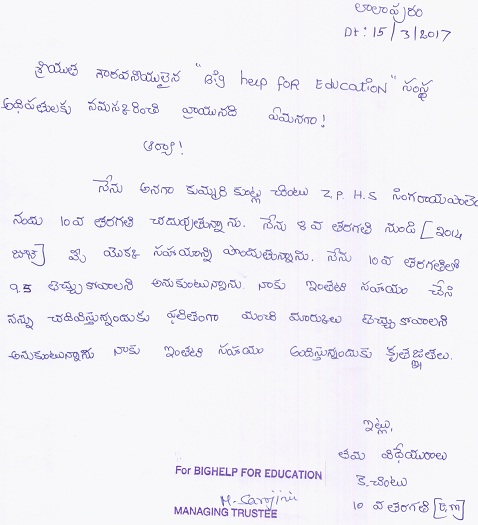 లాలాపురం
Dt: 15/3/2017
శ్రీయుత గౌరవనీయులైన "Big help FOR Education" సంస్థ
అధిపతులకు నమస్కరించి వ్రాయునది ఏమనగా!
ఆర్యా!
నేను అనగా కుమ్మరి కుంట్ల చింటు Z.P.H.S సింగరాయపాలెం
నందు 10వ తరగతి చదువుతున్నాను. నేను 8వ తరగతి నుండి [2014
జూన్] మీ యొక్క సహాయాన్ని పొందుతున్నాను. నేను 10వ తరగతిలో
9.5 తెచ్చుకోవాలని అనుకుంటున్నాను. నాకు ఇంతటి సహాయం చేసి
నన్ను చదివిస్తున్నందుకు ఫలితంగా మంచి మార్కులు తెచ్చుకోవాలని
అనుకుంటున్నాను నాకు ఇంతటి సహాయం అందిస్తున్నందుకు కృతజ్ఞతలు.
ఇట్లు,
తమ విధేయురాలు
కె. చింటు
10 వ తరగతి [E.M]
For BIGHELP FOR EDUCATION
M. Sarojini
MANAGING TRUSTEE